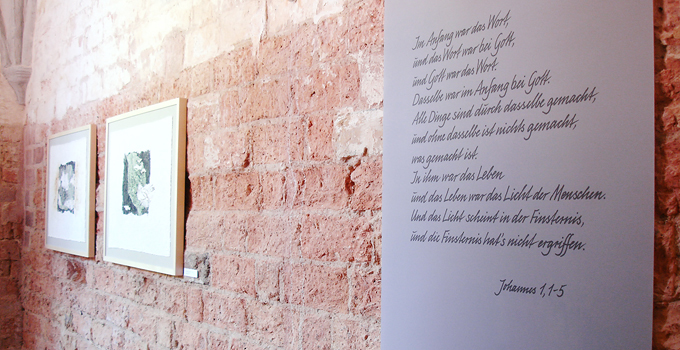 Im Anfang war das Wort.
und das Wort war bei Gott,
und Gott war das Wort.
Dasselbe war im Anfang bei Gott.
Alle Dinge sind durch dasselbe gemacht,
und ohne dasselbe ist nichts gemacht,
was gemacht ist.
In ihm war das Leben
und das Leben war das Licht der Menschen.
Und das Licht scheint in der Finsternis,
und die Finsternis hat's nicht ergriffen.
Johannes 1,1-5